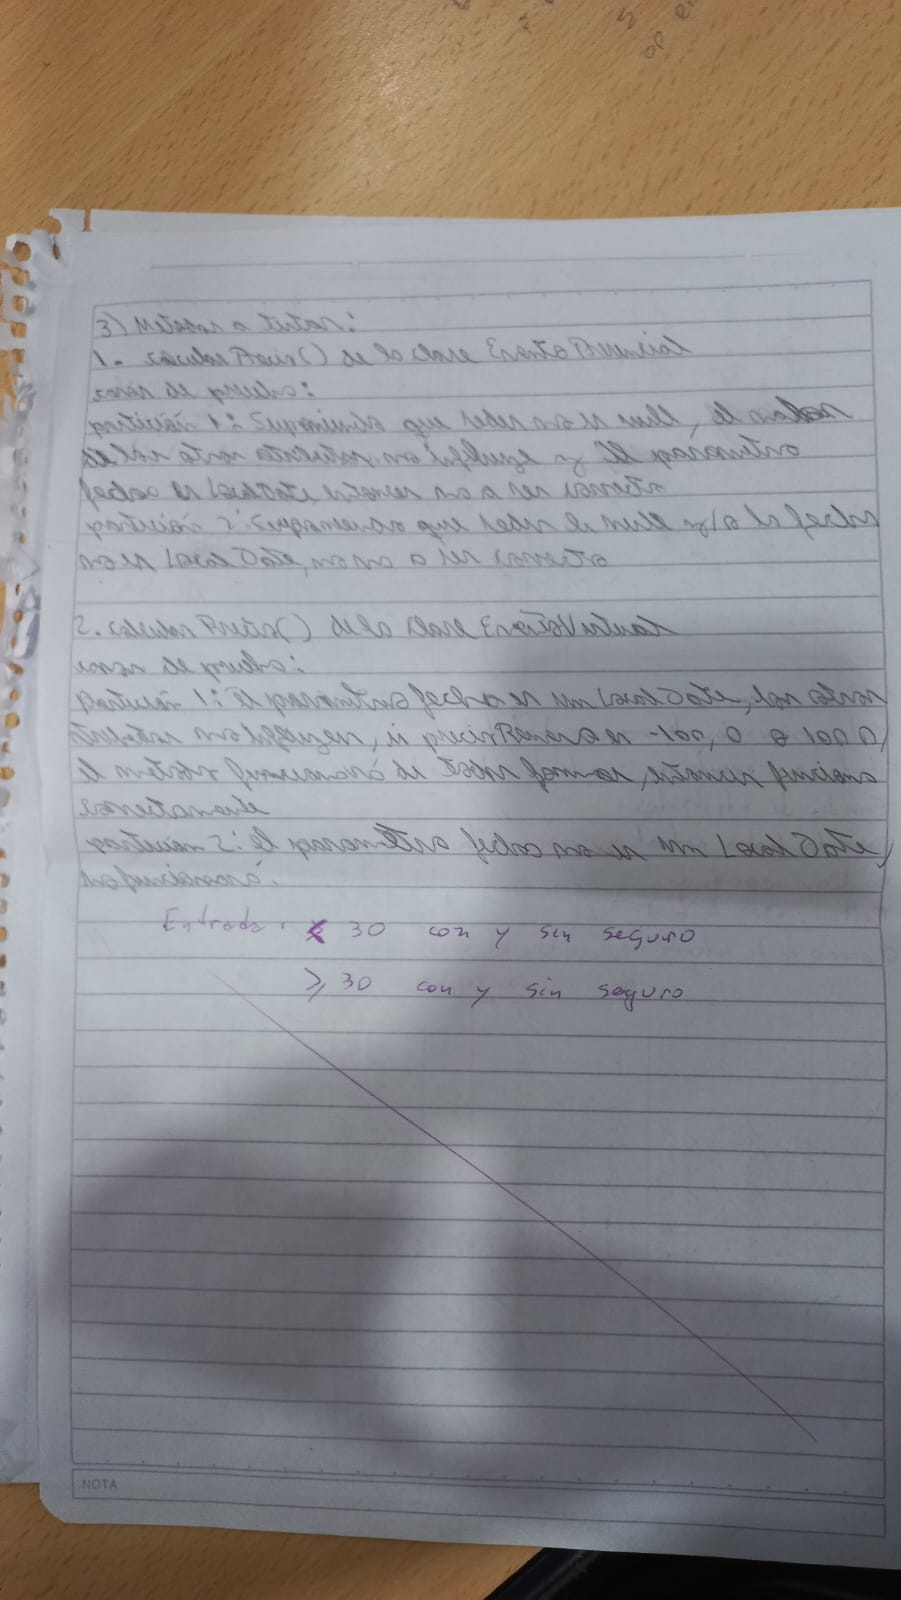 3) Metodos a testear:
1- calcularPrecio() de la clase EventoPresencial
casos de prueba:
particion 1: Suponiendo que sedes no es null, el
de las otras no influye y el parametro
fecha es LocalDate entonces va a ser correcto
particion 2: Suponemos que sedes es null y/o la fecha
no es LocalDate, no va a ser correcto
2. calcularPrecio() de la clase EventoVirtual
casos de prueba:
particion 1: el parametro fecha es un LocalDate, las otras
no influyen, si precio es -100, 0 o 1000,
el metodo funcionará de todas formas, entonces funciona
correctamente
particion 2: el parametro fecha no es un LocalDate,
no funcionará.
Entrada: < 30 con y sin seguro
≥ 30 con y sin seguro
NOTA